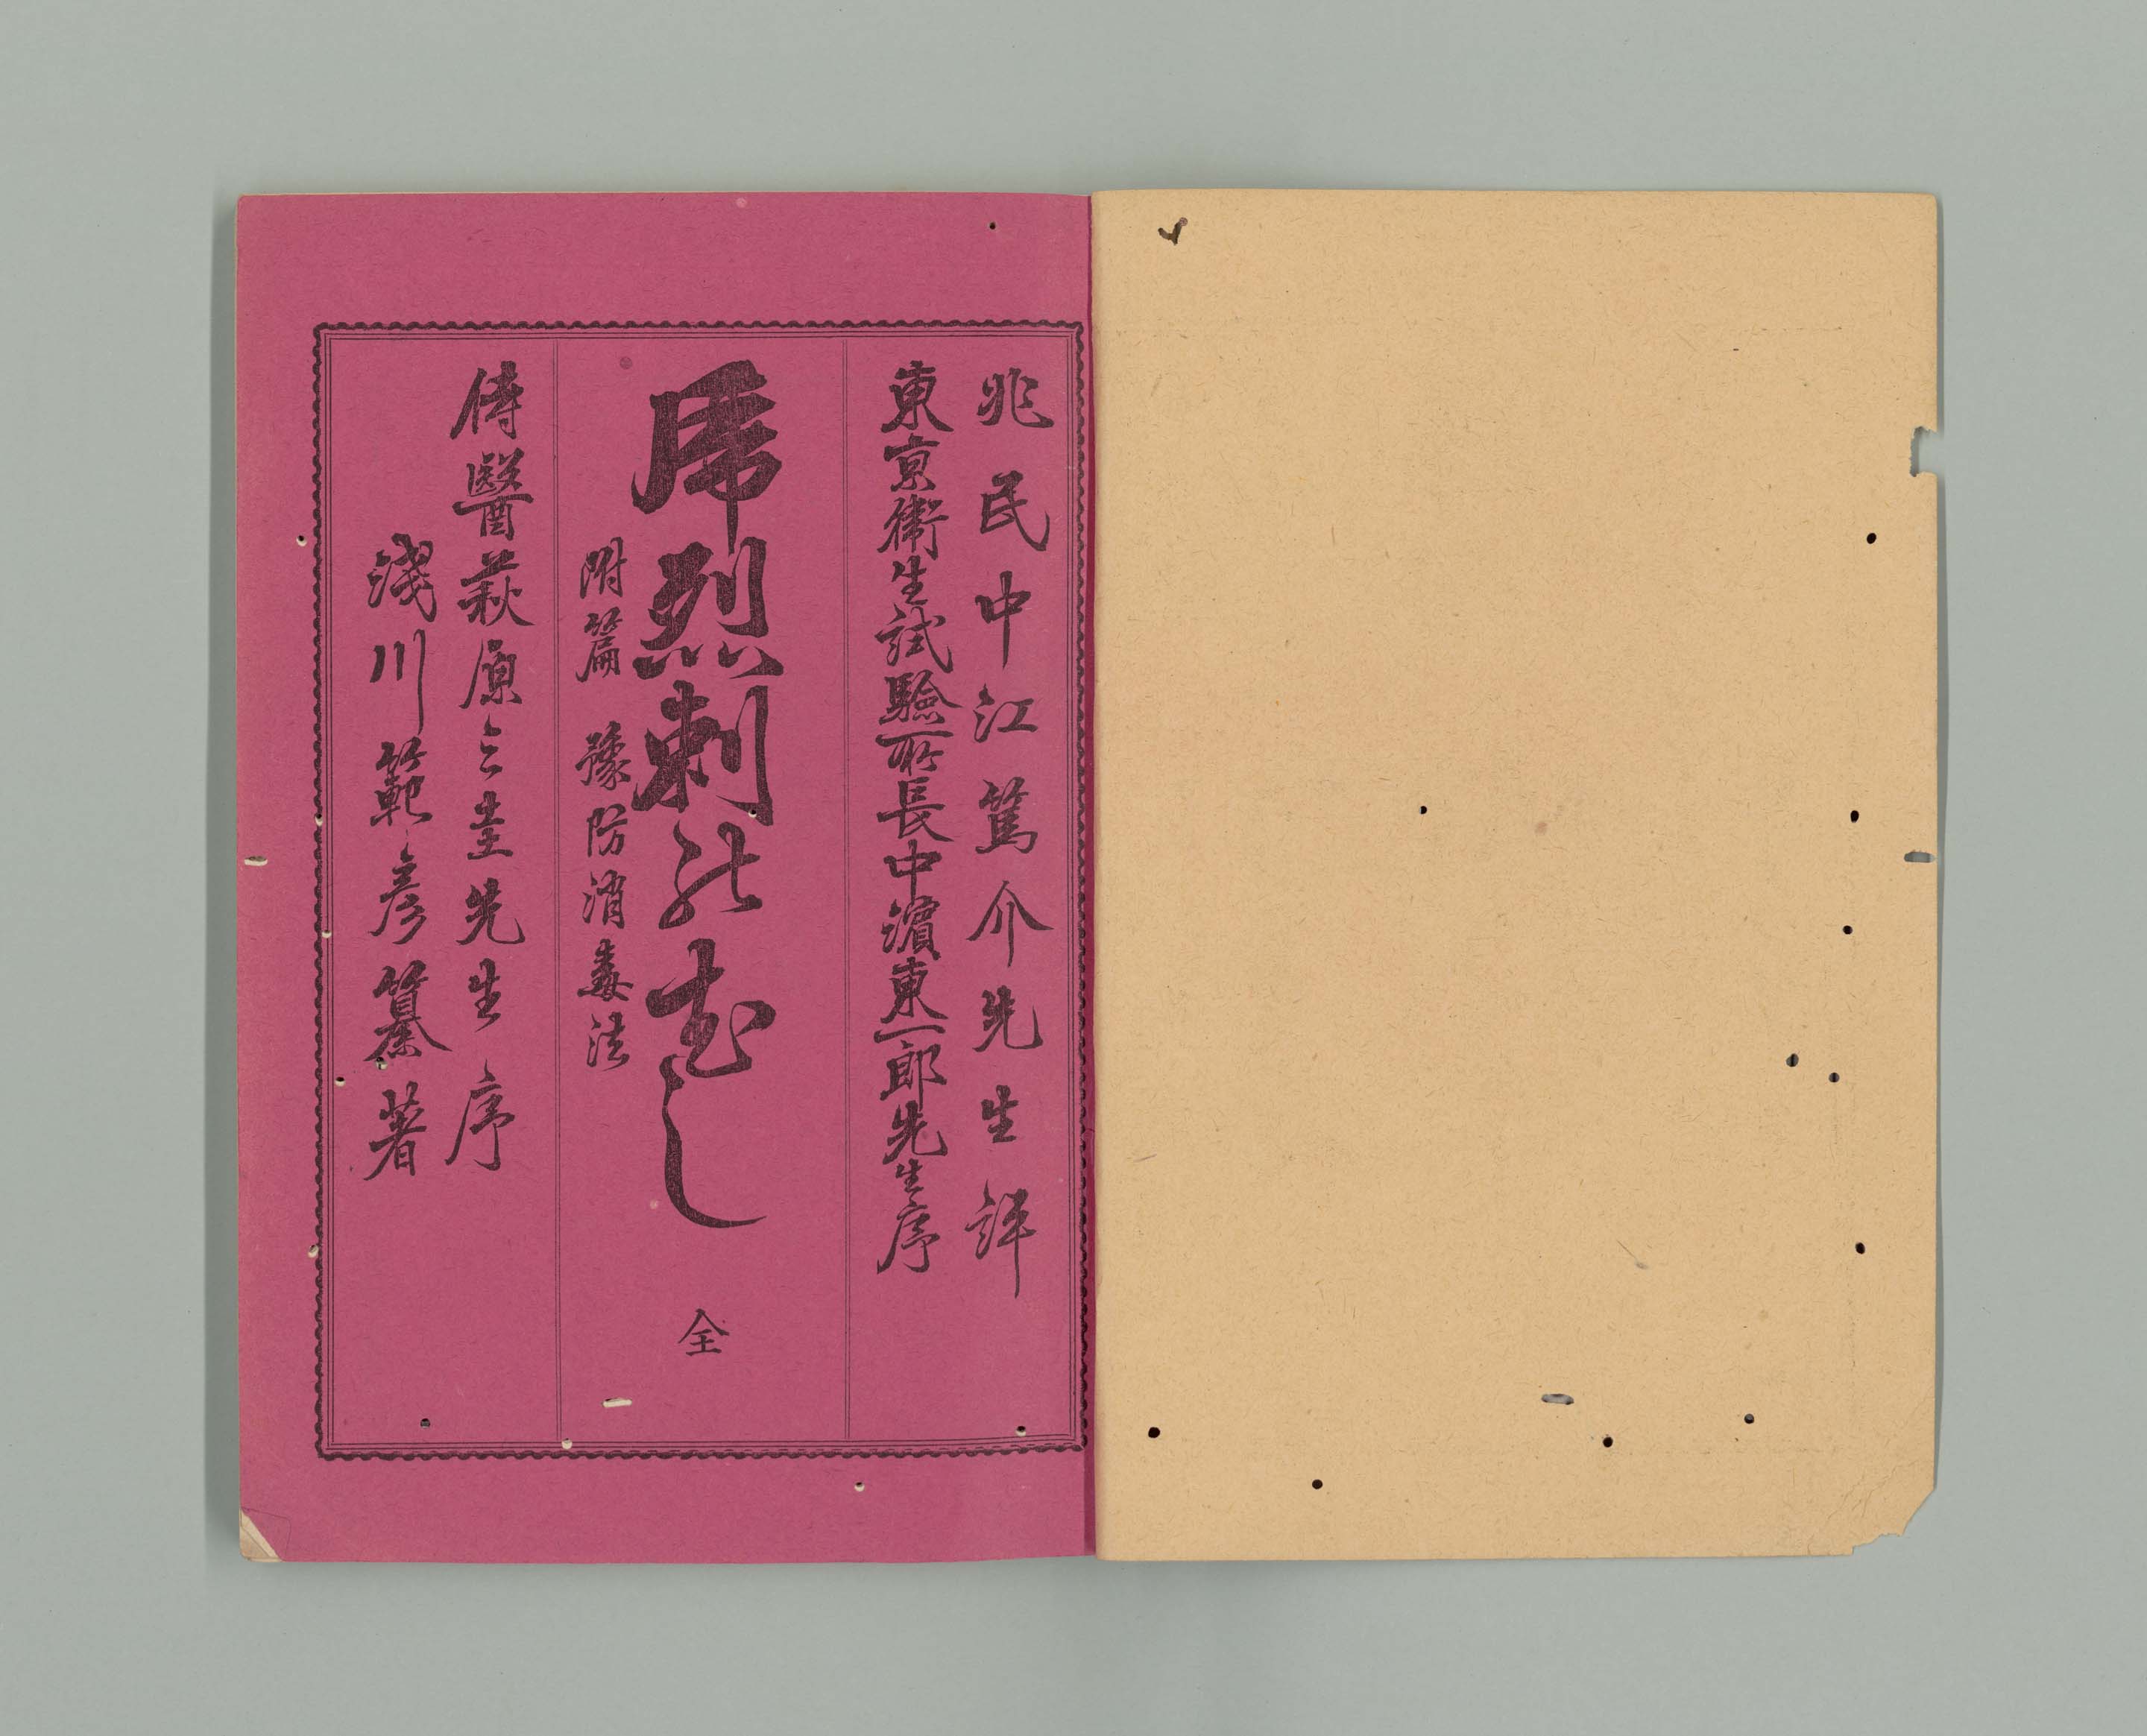 兆民中江篤介先生評
東京衞生試驗所長中濱東一郎先生序
乕烈剌のむし 全
附篇 豫防消毒法
侍醫萩原三圭先生序
淺川範彦纂著